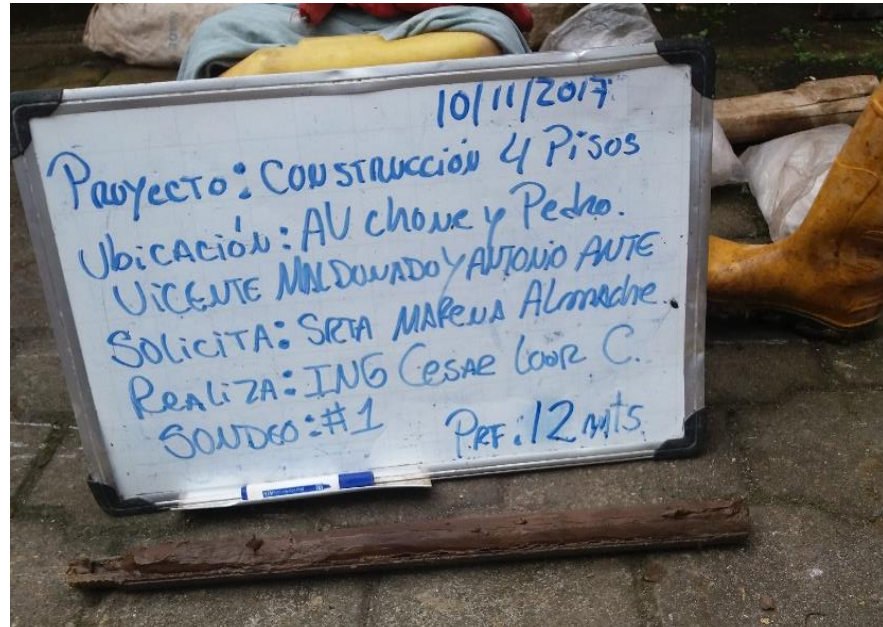 10/11/2017
PROYECTO: CONSTRUCCIÓN 4 PISOS
UBICACIÓN: AV CHONE y PEDRO.
VICENTE MALDONADO Y ANTONIO ANTE
SOLICITA: SRTA MARENA ALMACHE.
REALIZA: ING CESAR LOOR C.
SONDEO: #1 PRF: 12 mts